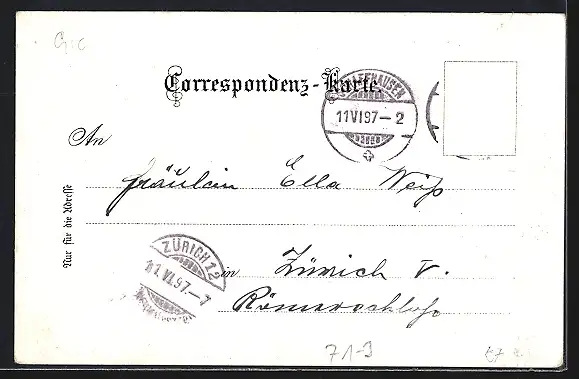 G.C
Correspondenz-Karte.
SCHAFFHAUSEN
11 VI 97 – 2
An
Fräulein Ella Weiß
Nur für die Adresse
ZÜRICH 12
11.VI.97.–7
in Zürich V.
Römerschloss
71-3